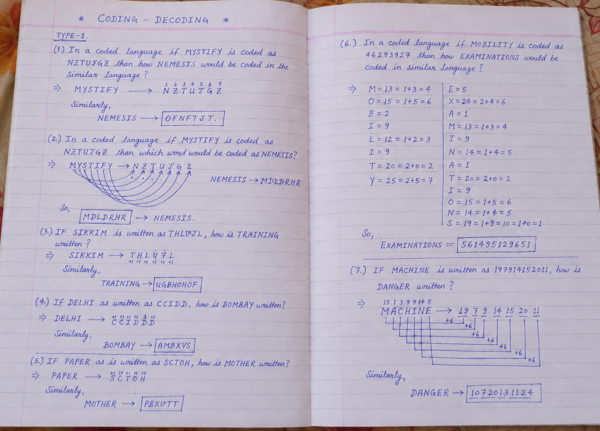 * CODING - DECODING *
TYPE-1
(1.) In a coded language if MYSTIFY is coded as
NZTUJGZ than how NEMESIS would be coded in the
similar language?
1 2 3 4 5 6 7
⇒ MYSTIFY → NZTUJGZ
Similarly,
NEMESIS → OFNFTJT.
(2.) In a coded language if MYSTIFY is coded as
NZTUJGZ than which word would be coded as NEMESIS?
⇒ MYSTIFY → NZTUJGZ
NEMESIS → MDLDRHR
So,
MDLDRHR → NEMESIS.
(3.) If SIKKIM is written as THLUJL, how is TRAINING
written?
⇒ SIKKIM →
Similarly,
TRAINING → UGBHOHOF
(4.) If DELHI as written as CCIDD, how is BOMBAY written?
⇒ DELHI →
Similarly,
BOMBAY → AMBXVS
(5.) If PAPER as is written as SCTOH, how is MOTHER written?
⇒ PAPER → SCTOH
Similarly,
MOTHER →
(6.) In a coded language if MOBILITY is coded as
46293927 than how EXAMINATIONS would be
coded in similar language?
⇒ M = 13 = 1+3 = 4
O = 15 = 1+5 = 6
B = 2
I = 9
L = 12 = 1+2 = 3
I = 9
T = 20 = 2+0 = 2
Y = 25 = 2+5 = 7
E = 5
X = 24 = 2+4 = 6
A = 1
M = 13 = 1+3 = 4
I = 9
N = 14 = 1+4 = 5
A = 1
T = 20 = 2+0 = 2
I = 9
O = 15 = 1+5 = 6
N = 14 = 1+4 = 5
S = 19 = 1+9 = 10 = 1+0 = 1
So,
EXAMINATIONS = 561495129651
(7.) If MACHINE is written as 197914152011, how is
DANGER written?
13 1 3 8 9 14 5
⇒ MACHINE → 19 7 9 14 15 20 11
+6
+6
+6
+6
Similarly,
DANGER → 1072013 1124